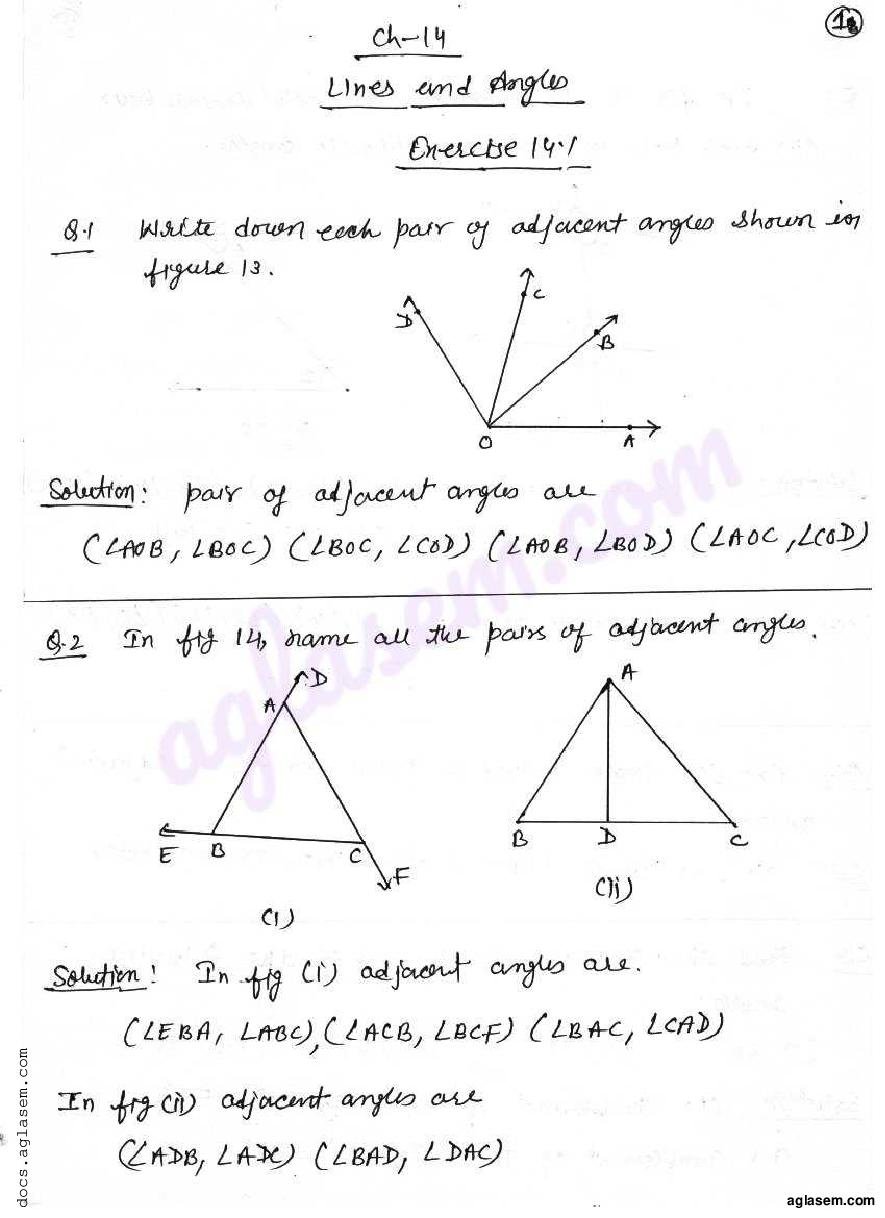 1
Ch-14
Lines and Angles
Exercise 14.1
Q.1 Write down each pair of adjacent angles shown in
figure 13.
D
C
B
O
A
Solution: pair of adjacent angles are
(∠AOB, ∠BOC) (∠BOC, ∠COD) (∠AOB, ∠BOD) (∠AOC, ∠COD)
Q.2 In fig 14, name all the pairs of adjacent angles.
A D
A
E B C F
B D C
(i)
(ii)
Solution: In fig (i) adjacent angles are.
(∠EBA, ∠ABC), (∠ACB, ∠BCF) (∠BAC, ∠CAD)
In fig (ii) adjacent angles are
(∠ADB, ∠ADC) (∠BAD, ∠DAC)
aglasem.com
docs.aglasem.com
aglasem.com